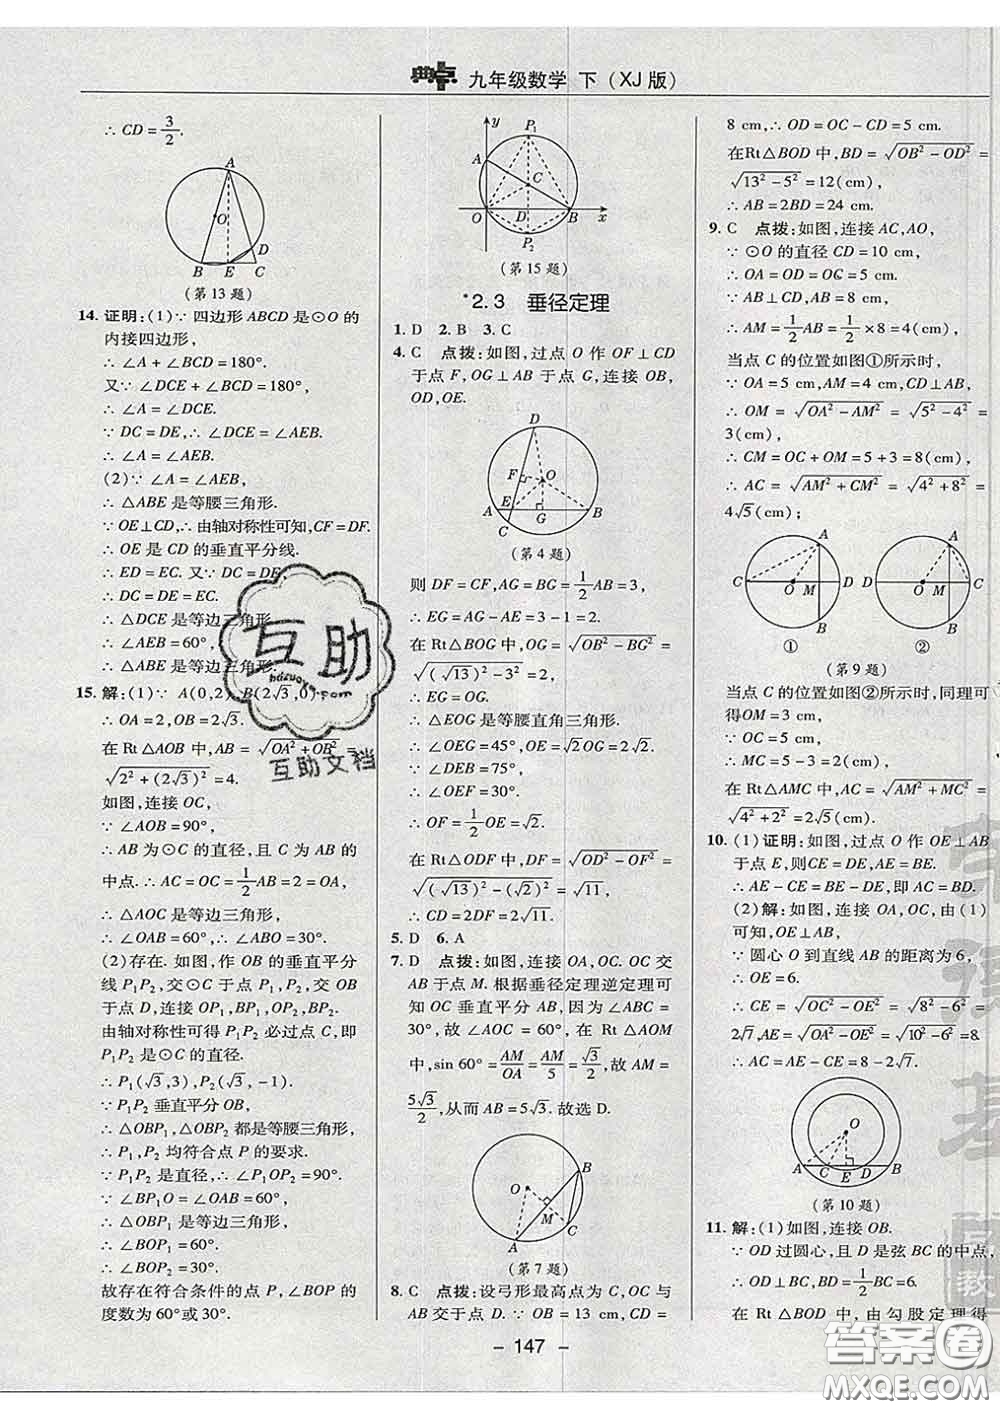 典点 九年级数学 下(XJ版)
∴ CD = 3/2.
A
O
D
B E C
(第13题)
14. 证明:(1)∵ 四边形 ABCD 是⊙O 的
内接四边形,
∴ ∠A + ∠BCD = 180°.
又∵ ∠DCE + ∠BCD = 180°,
∴ ∠A = ∠DCE.
∵ DC = DE,∴ ∠DCE = ∠AEB.
∴ ∠A = ∠AEB.
(2)∵ ∠A = ∠AEB,
∴ △ABE 是等腰三角形.
∵ OE⊥CD,∴ 由轴对称性可知,CF = DF.
∴ OE 是 CD 的垂直平分线.
∴ ED = EC. 又∵ DC = DE,
∴ DC = DE = EC.
∴ △DCE 是等边三角形.
∴ ∠AEB = 60°,
∴ △ABE 是等边三角形.
15. 解:(1)∵ A(0,2),B(2√3,0),
∴ OA = 2,OB = 2√3.
在 Rt△AOB 中,AB = √(OA² + OB²) =
√(2² + (2√3)²) = 4.
如图,连接 OC,
∵ ∠AOB = 90°,
∴ AB 为⊙C 的直径,且 C 为 AB 的
中点.∴ AC = OC = 1/2 AB = 2 = OA,
∴ △AOC 是等边三角形,
∴ ∠OAB = 60°,∴ ∠ABO = 30°.
(2)存在. 如图,作 OB 的垂直平分
线 P₁P₂,交⊙C 于点 P₁,P₂,交 OB
于点 D,连接 OP₁,BP₁,OP₂,BP₂.
由轴对称性可得 P₁P₂ 必过点 C,即
P₁P₂ 是⊙C 的直径.
∴ P₁(√3,3),P₂(√3,-1).
∵ P₁P₂ 垂直平分 OB,
∴ △OBP₁,△OBP₂ 都是等腰三角形.
∴ P₁,P₂ 均符合点 P 的要求.
∵ P₁P₂ 是直径,∴ ∠P₁OP₂ = 90°.
∵ ∠BP₁O = ∠OAB = 60°,
∴ △OBP₁ 是等边三角形.
∴ ∠BOP₁ = 60°,
∴ ∠BOP₂ = 30°.
故存在符合条件的点 P,∠BOP 的
度数为60°或30°.
y P₁
A
C
O D B x
P₂
(第15题)
*2.3 垂径定理
1. D 2. B 3. C
4. C 点拨:如图,过点 O 作 OF⊥CD
于点 F,OG⊥AB 于点 G,连接 OB,
OD,OE.
D
F O
E
A G B
C
(第4题)
则 DF = CF,AG = BG = 1/2 AB = 3,
∴ EG = AG - AE = 3 - 1 = 2.
在 Rt△BOG 中,OG = √(OB² - BG²) =
√((√13)² - 3²) = 2.
∴ EG = OG.
∴ △EOG 是等腰直角三角形.
∴ ∠OEG = 45°,OE = √2OG = 2√2.
∵ ∠DEB = 75°,
∴ ∠OEF = 30°.
∴ OF = 1/2 OE = √2.
在 Rt△ODF 中,DF = √(OD² - OF²) =
√((√13)² - (√2)²) = √11,
∴ CD = 2DF = 2√11.
5. D 6. A
7. D 点拨:如图,连接 OA,OC. OC 交
AB 于点 M. 根据垂径定理逆定理可
知 OC 垂直平分 AB,因为∠ABC =
30°,故∠AOC = 60°,在 Rt△AOM
中,sin 60° = AM/OA = AM/5 = √3/2,故 AM =
5√3/2,从而 AB = 5√3. 故选 D.
O B
M
A C
(第7题)
8. C 点拨:设弓形最高点为 C,OC 与
AB 交于点 D. ∵ OB = 13 cm,CD =
8 cm,∴ OD = OC - CD = 5 cm.
在Rt△BOD 中,BD = √(OB² - OD²) =
√(13² - 5²) = 12(cm),
∴ AB = 2BD = 24 cm.
9. C 点拨:如图,连接 AC,AO,
∵ ⊙O 的直径 CD = 10 cm,
∴ OA = OD = OC = 5 cm.
∵ AB⊥CD,AB = 8 cm,
∴ AM = 1/2 AB = 1/2 × 8 = 4(cm),
当点 C 的位置如图①所示时,
∵ OA = 5 cm,AM = 4 cm,CD⊥AB,
∴ OM = √(OA² - AM²) = √(5² - 4²) =
3(cm),
∴ CM = OC + OM = 5 + 3 = 8(cm),
∴ AC = √(AM² + CM²) = √(4² + 8²) =
4√5(cm);
A
C O M D
B
①
A
D O M C
B
②
(第9题)
当点 C 的位置如图②所示时,同理可
得OM = 3 cm,
∵ OC = 5 cm,
∴ MC = 5 - 3 = 2(cm),
在 Rt△AMC 中,AC = √(AM² + MC²) =
√(4² + 2²) = 2√5(cm).
10. (1)证明:如图,过点 O 作 OE⊥AB
于点 E,则CE = DE,AE = BE.
∴ AE - CE = BE - DE,即 AC = BD.
(2)解:如图,连接 OA,OC,由(1)
可知,OE⊥AB,
∵ 圆心 O 到直线 AB 的距离为 6,
∴ OE = 6.
∴ CE = √(OC² - OE²) = √(8² - 6²) =
2√7,AE = √(OA² - OE²) = √(10² - 6²) = 8.
∴ AC = AE - CE = 8 - 2√7.
O
A C E D B
(第10题)
11. 解:(1)如图,连接 OB.
∵ OD 过圆心,且 D 是弦 BC 的中点,
∴ OD⊥BC,BD = 1/2 BC = 6.
在 Rt△BOD 中,由勾股定理得
- 147 -
互助
hdzuoye.com
互助文档
答案圈
MXQE.COM